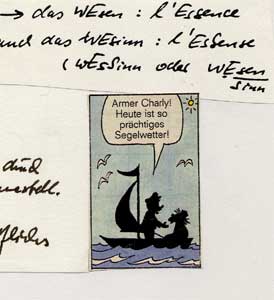 → das WEsen : l'Essence
und das WEsinn : l'EsSense
(WEsSinn oder WEsen
sinn
Armer Charly!
Heute ist so
prächtiges
Segelwetter!
und